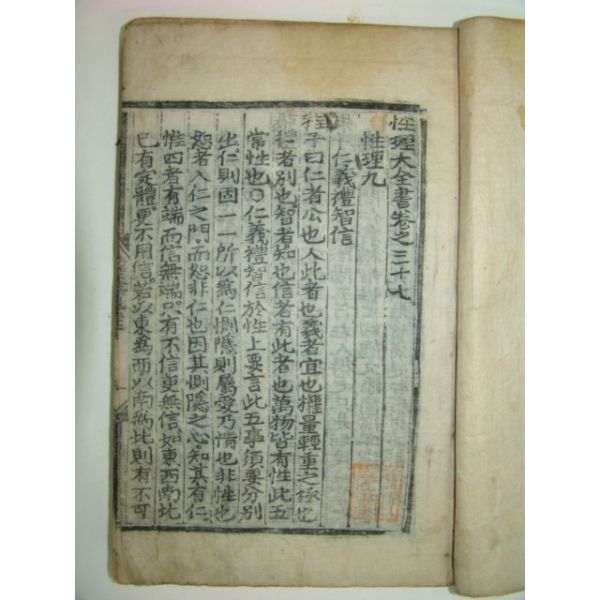 性理大全書卷之三十七
性理九
仁義禮智信
程子曰仁者公也人此者也義者宜也權量輕重之極也
禮者別也智者知也信者有此者也萬物皆有性此五
常性也○仁義禮智信於性上要言此五事須要分別
出仁則固一一所以爲仁惻隱則屬愛乃情也非性也
恕者入仁之門而恕非仁也因其惻隱之心知其有仁
惟四者有端而信無端只有不信更無信如東西南北
已有定體更不用信若以東爲西以南爲北則有不可